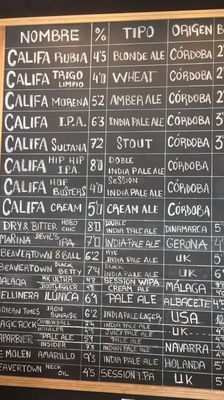 NOMBRE % TIPO ORIGEN
CALIFA RUBIA 4'5 BLONDE ALE CÓRDOBA
CALIFA TRIGO LIMPIO 4'5 WHEAT CÓRDOBA
CALIFA MORENA 5'2 AMBER ALE CÓRDOBA
CALIFA I.P.A. 6'3 INDIA PALE ALE CÓRDOBA
CALIFA SULTANA 7'2 STOUT CÓRDOBA
CALIFA HIP HIP I.P.A. 8'0 DOBLE INDIA PALE ALE CÓRDOBA
CALIFA HOP BUSTERS 4'0 SESSION INDIA PALE ALE CÓRDOBA
CALIFA CREAM 5'0 CREAM ALE CÓRDOBA
DRY & BITTER HOBO CHIC 8'0 DOUBLE INDIA PALE ALE DINAMARCA
MARINA DEVIL'S IPA 7'0 INDIA PALE ALE GERONA
BEAVERTOWN 8 BALL 6'2 RYE INDIA PALE ALE UK
BEAVERTOWN BLACK BETTY 7'4 BLACK INDIA PALE ALE UK
MALAGA SESSION WIPA MÁLAGA
BOOTLEGGER CREAM ALE
ILÚNICA 6'1 PALE ALE ALBACETE
IRON 6'2 INDIA PALE LAGER USA
INDIA PALE ALE UK
INDIA PALE ALE NAVARRA
DE MOLEN AMARILLO 9'2 INDIA PALE ALE HOLANDA
BEAVERTOWN NECK OIL 4'3 SESSION I.P.A UK